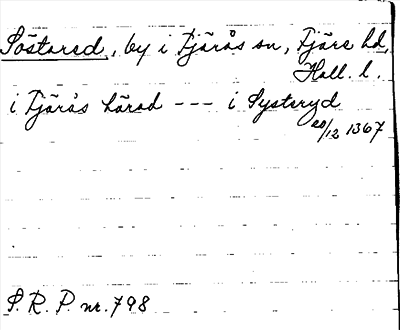 Söstared, by i Fjärås sn, Fjäre hd,
Hall. l.
i Fjärås härad --- i Systeryd
20/12 1367
S. R. P. nr. 798